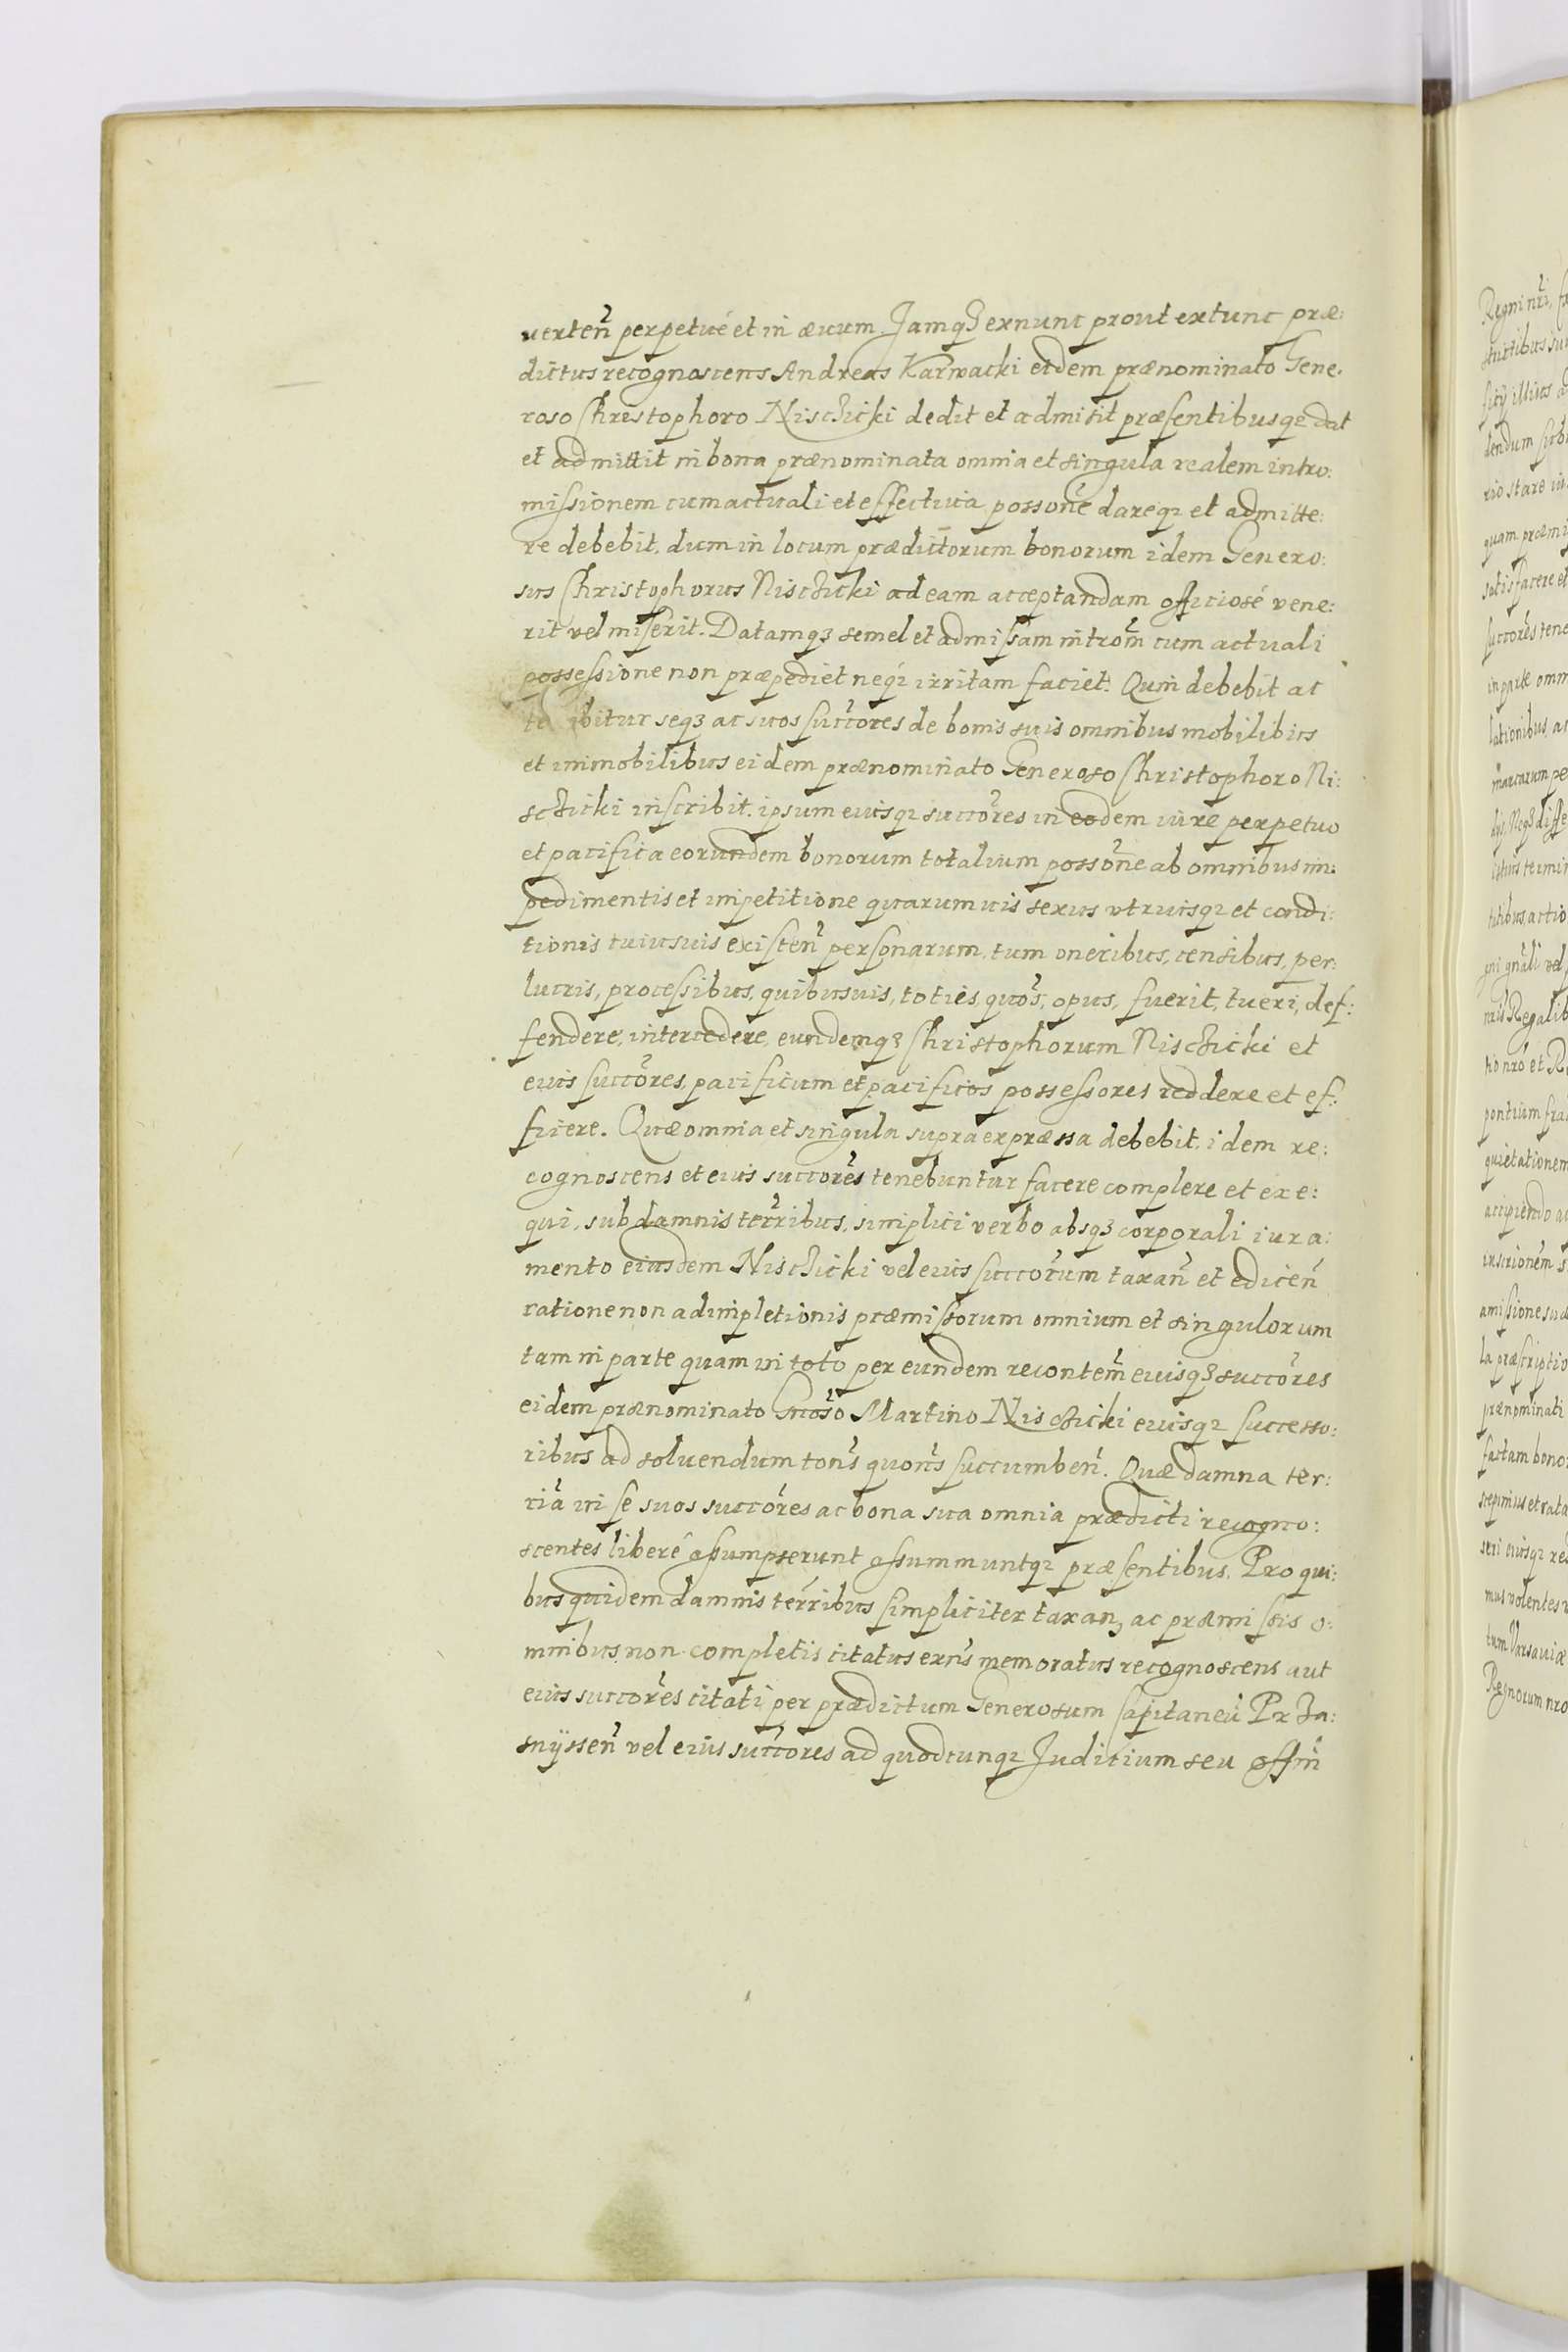 verten̄ perpetué et in æuum. Jamq3 exnunc prout extunc præ:
dictus recognoscens Andreas Karwacki eidem prænominato Gene:
roso Christophoro Nisczicki dedit et admisit præsentibusq3 dat
et admittit in bona prænominata omnia et singula realem intro:
missionem cum actuali et effectiua possone̅ dareq3 et admitte:
re debebit. dum in locum prædictorum bonorum idem Genero:
sus Christophorus Nisczicki ad eam acceptandam officiosé vene:
rit vel miserit. Datamq3 semel et admissam introm̄ cum actuali
possessione non præpediet neq3 irritam faciet. Quin debebit ac
bitur seq3 ac suos succo̅res de bonis suis omnibus mobilibus
et immobilibus eidem prænominato Generoso Christophoro Ni:
sczicki inscribit. ipsum eiusq3 succo̅res in eodem iure perpetuo
et pacifica eorundem bonorum totalium posso̅ne ab omnibus im:
pedimentis et impetitione quarumuis sexus vtriusq3 et condi:
tionis cuiusuis existen̄ personarum, tum oneribus, censibus, per:
lucris, processibus, quibusuis, toties, quo̅s, opus, fuerit, tueri, def:
fendere, intercedere, eundemq3 Christophorum Nisczicki et
eius succo̅res, pacificum et pacificos possessores reddere et ef:
ficere. Quæ omnia et singula supra expræssa debebit. idem re:
cognoscens et eius succo̅res tenebuntur facere complere et exe:
qui, sub damnis ter̅ribus, simplici verbo absq3 corporali iura:
mento eiusdem Nisczicki vel eius succo̅rum taxan̄ et edicen̄
ratione non adimpletionis præmissorum omnium et singulorum
tam in parte quam in toto per eundem recontem̄ eiusq3 succo̅res
eidem prænominato Gnoso̅ Martino Nisczicki eiusq3 successo:
ribus ad soluendum ton̄s quon̄s succumben̄. Quæ damna ter:
ria̅ in se suos succo̅res ac bona sua omnia prædicti recogno:
scentes liberé assumpserunt assummuntq3 præsentibus. Pro qui:
bus quidem damnis ter̅ribus simpliciter taxan3 ac præmissis o:
mnibus non completis citatus exn̄s memoratus recognoscens aut
eius succo̅res citati per prædictum Generosum Capitaneu̅ Prza:
snÿssen̄ vel eius succo̅res ad quodcunq3 Juditium seu offm̄